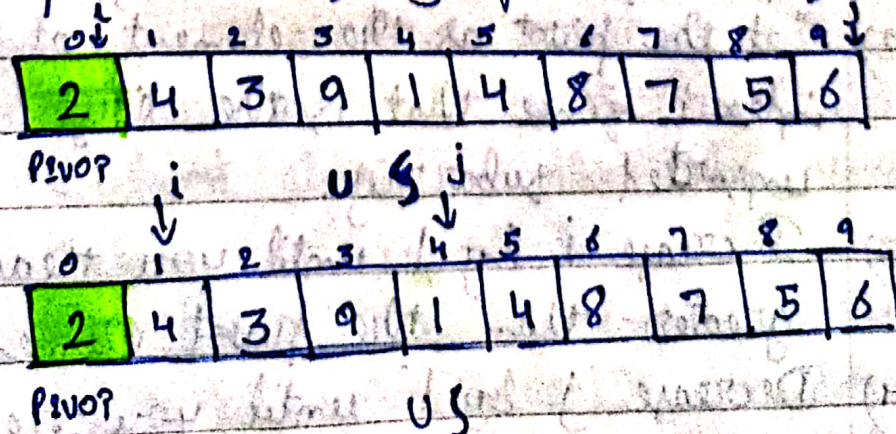 i j
0 1 2 3 4 5 6 7 8 9
2 4 3 9 1 4 8 7 5 6
PIVOT
i j
0 1 2 3 4 5 6 7 8 9
2 4 3 9 1 4 8 7 5 6
PIVOT